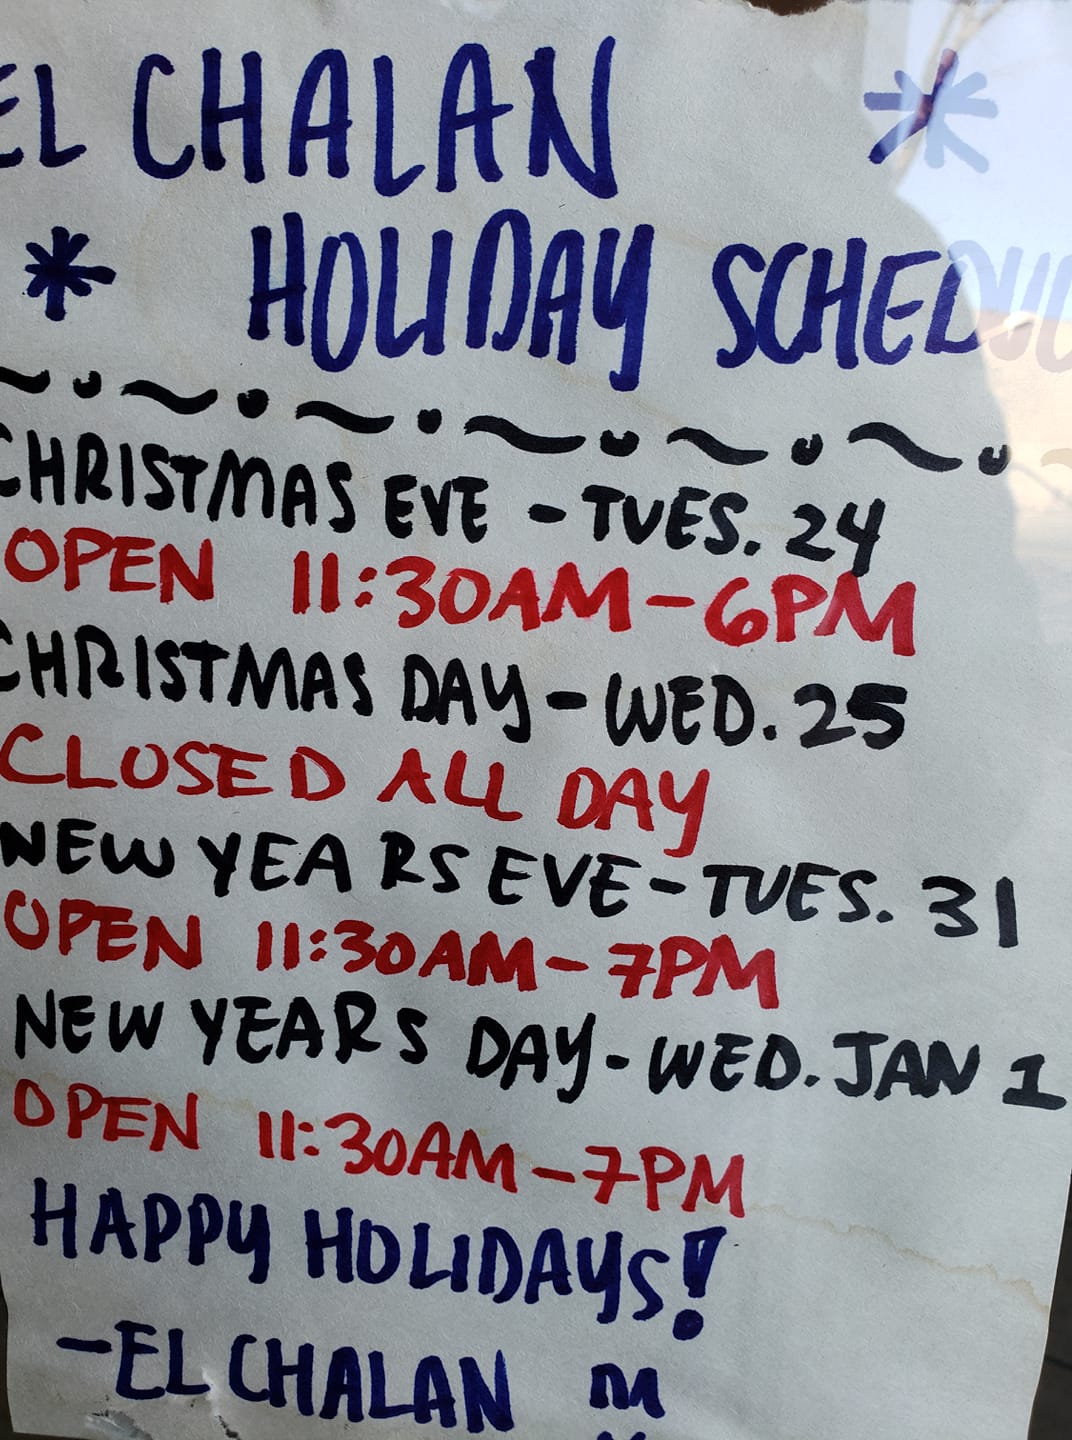 EL CHALAN *
* HOLIDAY SCHEDUL
~ • ~ • ~ • ~ • ~ • ~ •
CHRISTMAS EVE - TUES. 24
OPEN 11:30AM - 6PM
CHRISTMAS DAY - WED. 25
CLOSED ALL DAY
NEW YEARS EVE - TUES. 31
OPEN 11:30AM - 7PM
NEW YEARS DAY - WED. JAN 1
OPEN 11:30AM - 7PM
HAPPY HOLIDAYS!
- EL CHALAN